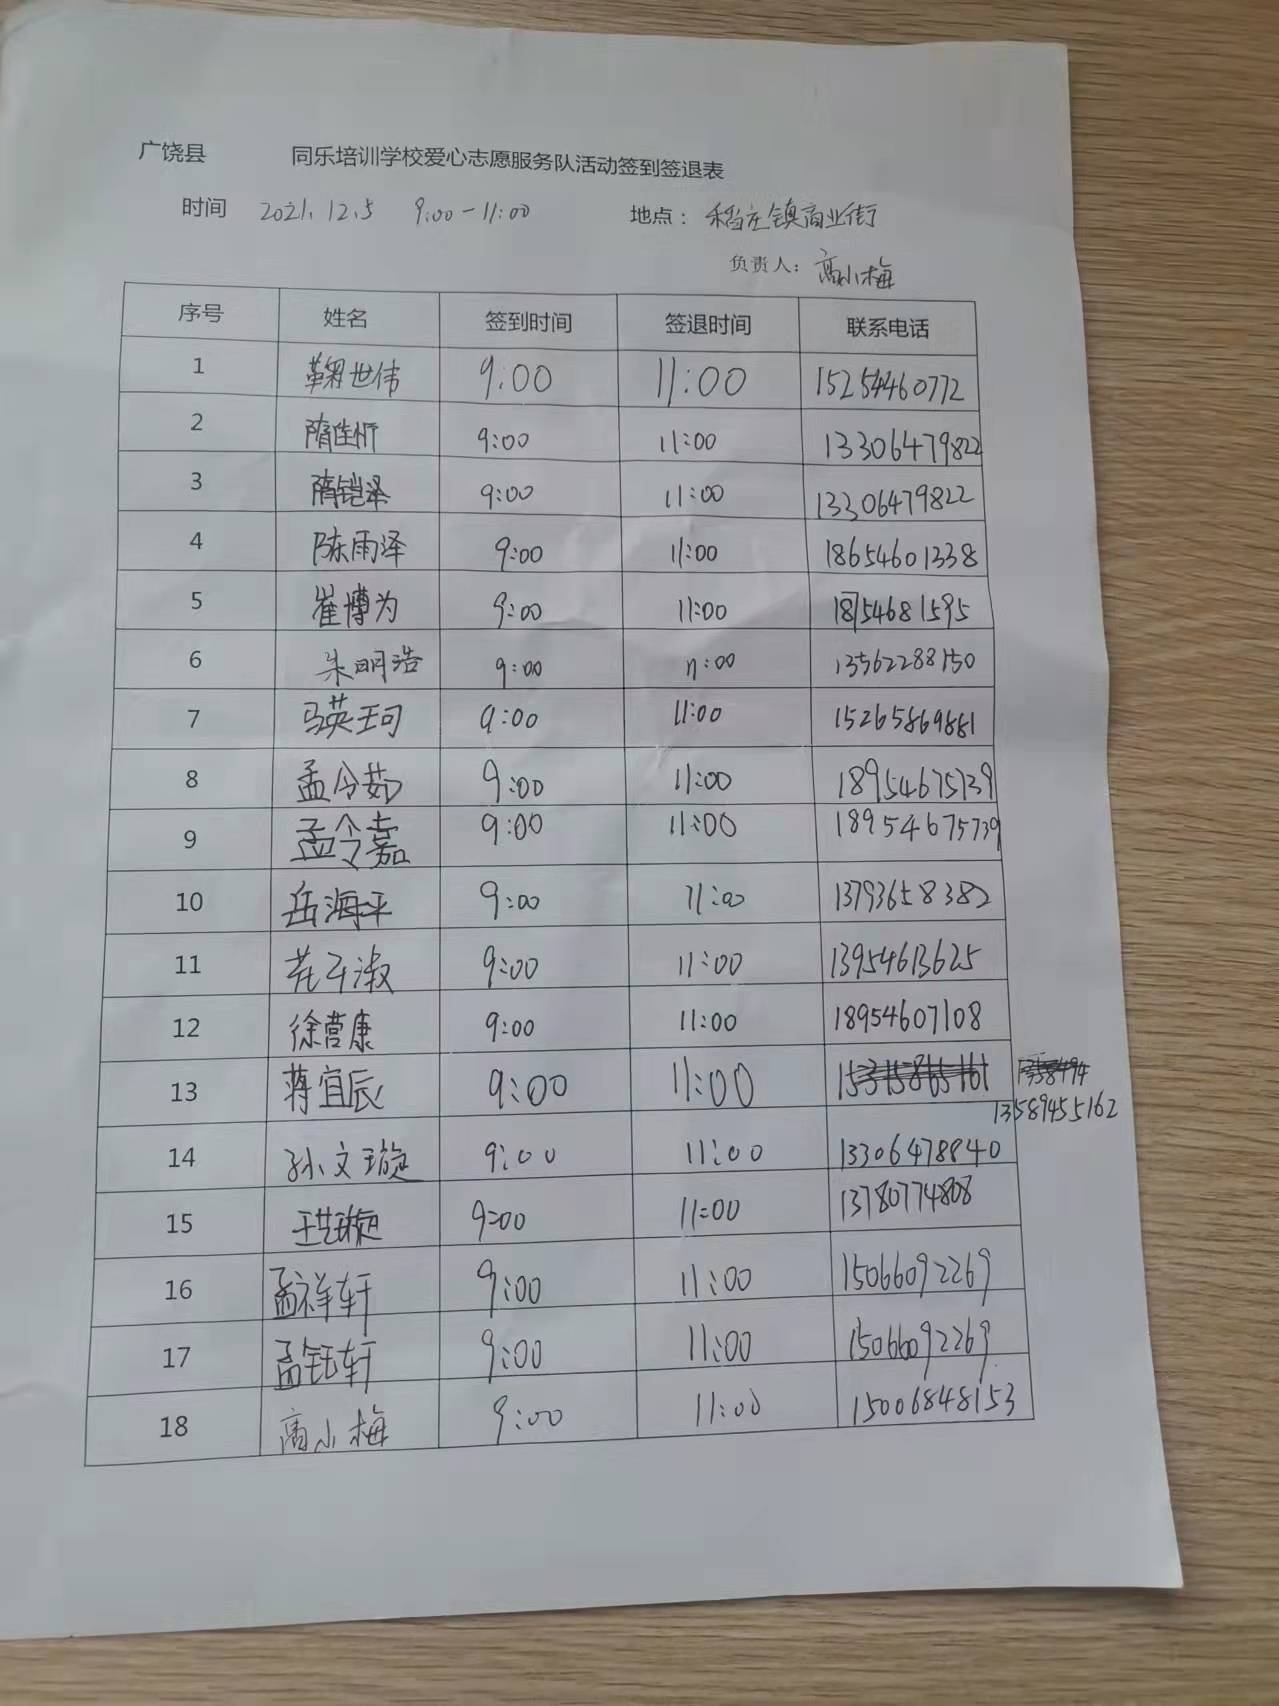 广饶县 同乐培训学校爱心志愿服务队活动签到签退表
时间 2021.12.5 9:00-11:00 地点：稻庄镇商业街
负责人：高小梅
序号 姓名 签到时间 签退时间 联系电话
1 鞠世伟 9:00 11:00 15254460772
2 隋佳忻 9:00 11:00 13306479822
3 隋铠泽 9:00 11:00 13306479822
4 陈雨泽 9:00 11:00 18654601338
5 崔博为 9:00 11:00 18154681595
6 朱明浩 9:00 11:00 13562288150
7 马英珂 9:00 11:00 15265869881
8 孟令茹 9:00 11:00 18954675739
9 孟令嘉 9:00 11:00 18954675739
10 岳海平 9:00 11:00 13793658382
11 9:00 11:00 13954613625
12 徐营康 9:00 11:00 18954607108
13 蒋宜辰 9:00 11:00
13589455162
14 孙文璇 9:00 11:00 13306478840
15 王艺璇 9:00 11:00 13780774808
16 孟祥轩 9:00 11:00 15066092269
17 孟钰轩 9:00 11:00 15066092269
18 高小梅 9:00 11:00 15006848153